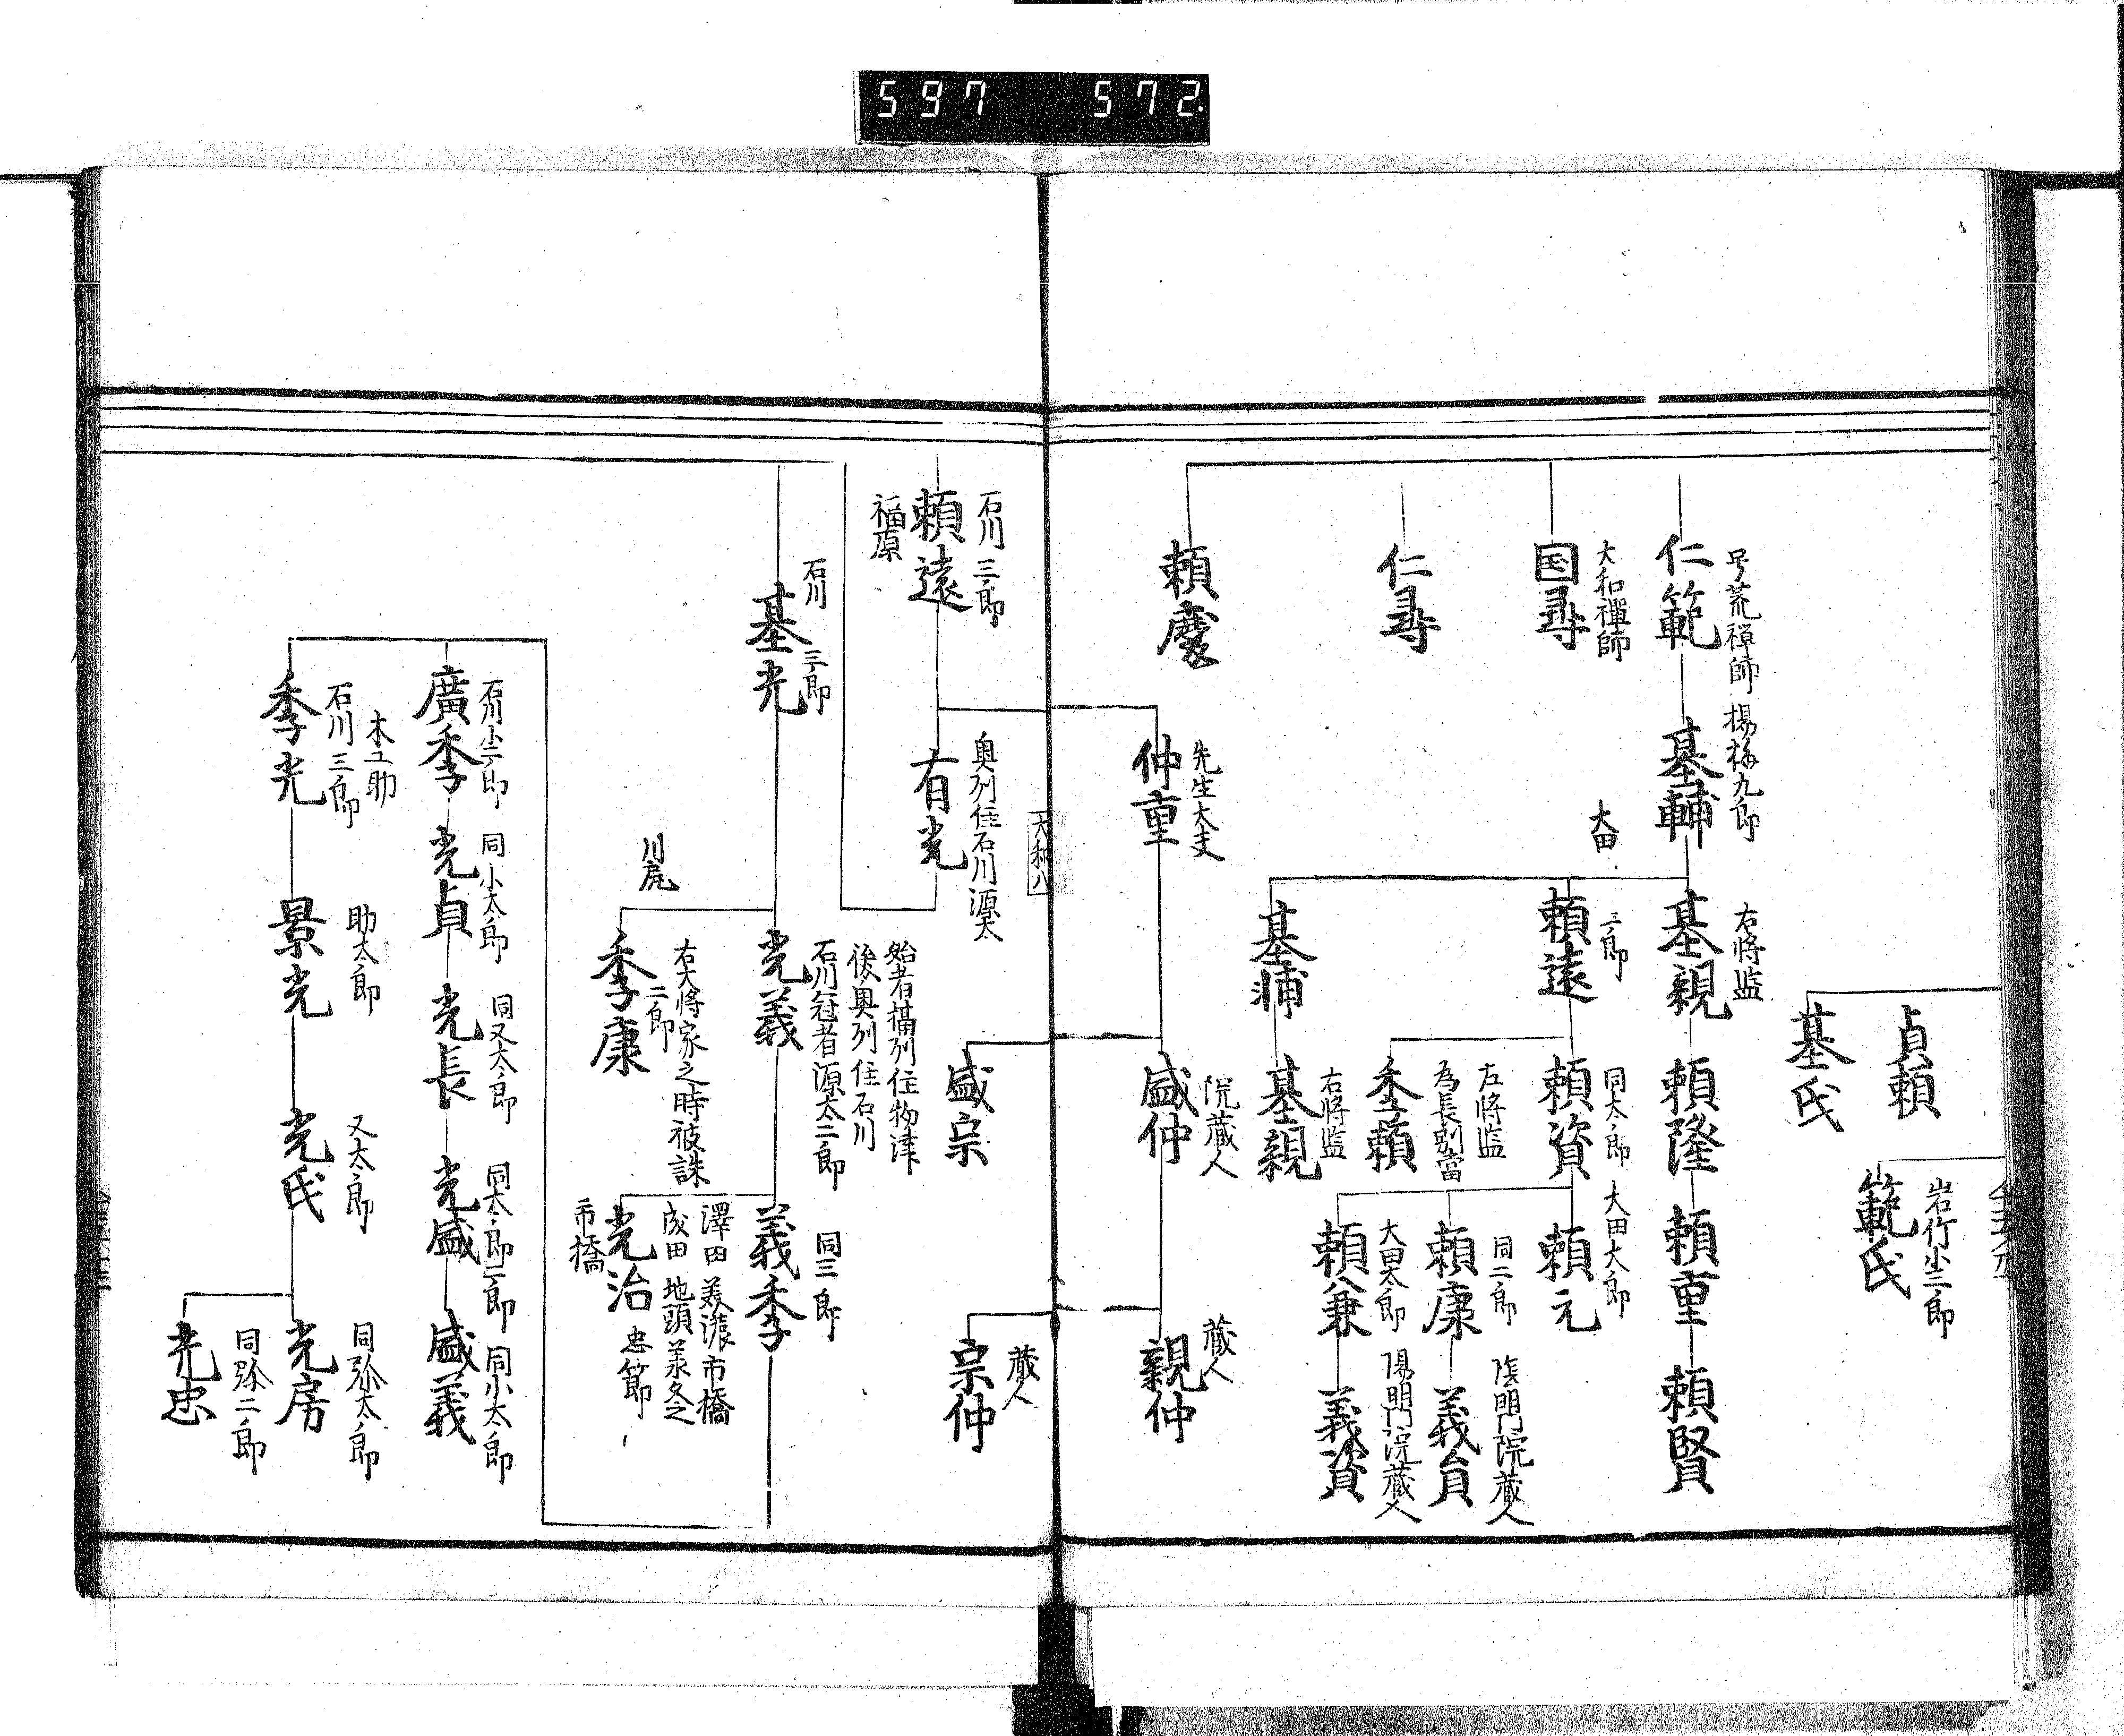 597 572
貞頼
基氏
岩竹小二郎
範氏
号荒禅師
仁範
楊梅九郎
基輔
右将監
基親
頼隆
頼重
頼賢
大和禪師
国尋
大田
三郎
頼遠
同太郎
頼資
大田大郎
頼元
左将監
為長別當
季頼
同二郎
頼康
陰明門院蔵人
義員
大田太郎
頼兼
陽明門院蔵人
義資
仁尋
基浦
右将監
基親
頼慶
先生大夫
仲重
院蔵人
盛仲
蔵人
親仲
盛宗
蔵人
宗仲
大和八
石川三郎
頼遠
福原
奥列住石川源太
有光
石川三郎
基光
始者攝列住物津
後奥列住石川
石川冠者源太二郎
光義
川尻
右大将家之時被誅
二郎
季康
同三郎
義季
澤田 美濃市橋
成田 地頭 羕久之
忠節
光治
市橋
石川小二郎
廣季
同小太郎
光貞
同又太郎
光長
同太郎二郎
光盛
同小太郎
盛義
木工助
石川三郎
季光
助太郎
景光
又太郎
光氏
同弥太郎
光房
同弥二郎
光忠